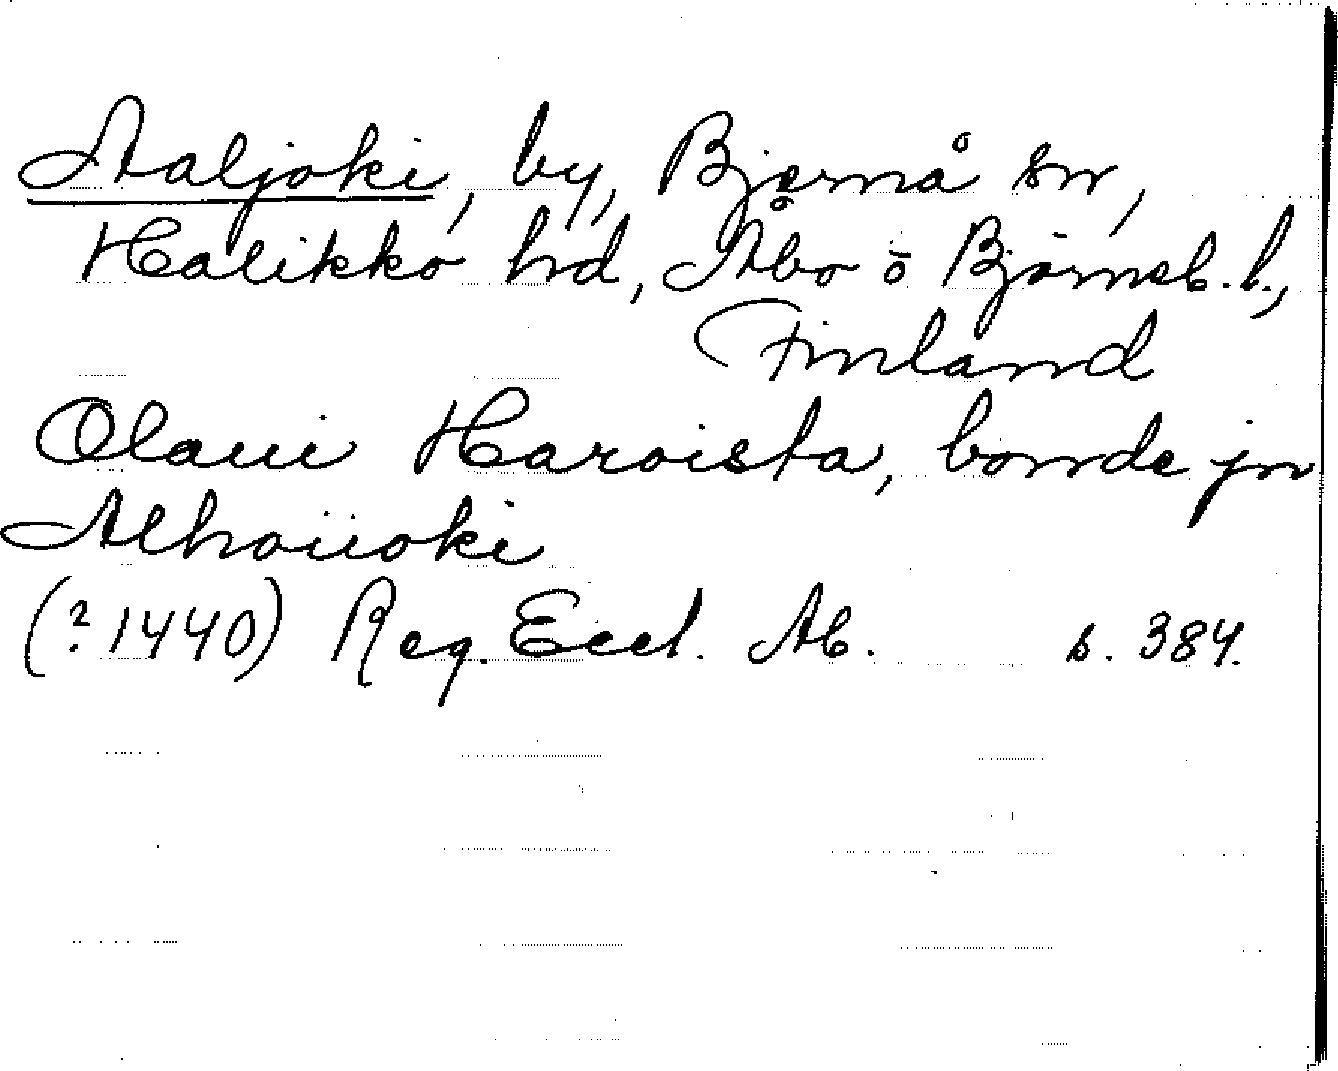 Aaljoki, by, Bjärnå sn,
Halikko hd, Åbo ō Björneb. l.,
Finland
Olaui Haroista, bonde jn
Alhoiioki
(? 1440) Reg. Eccl. Ab. s. 384.